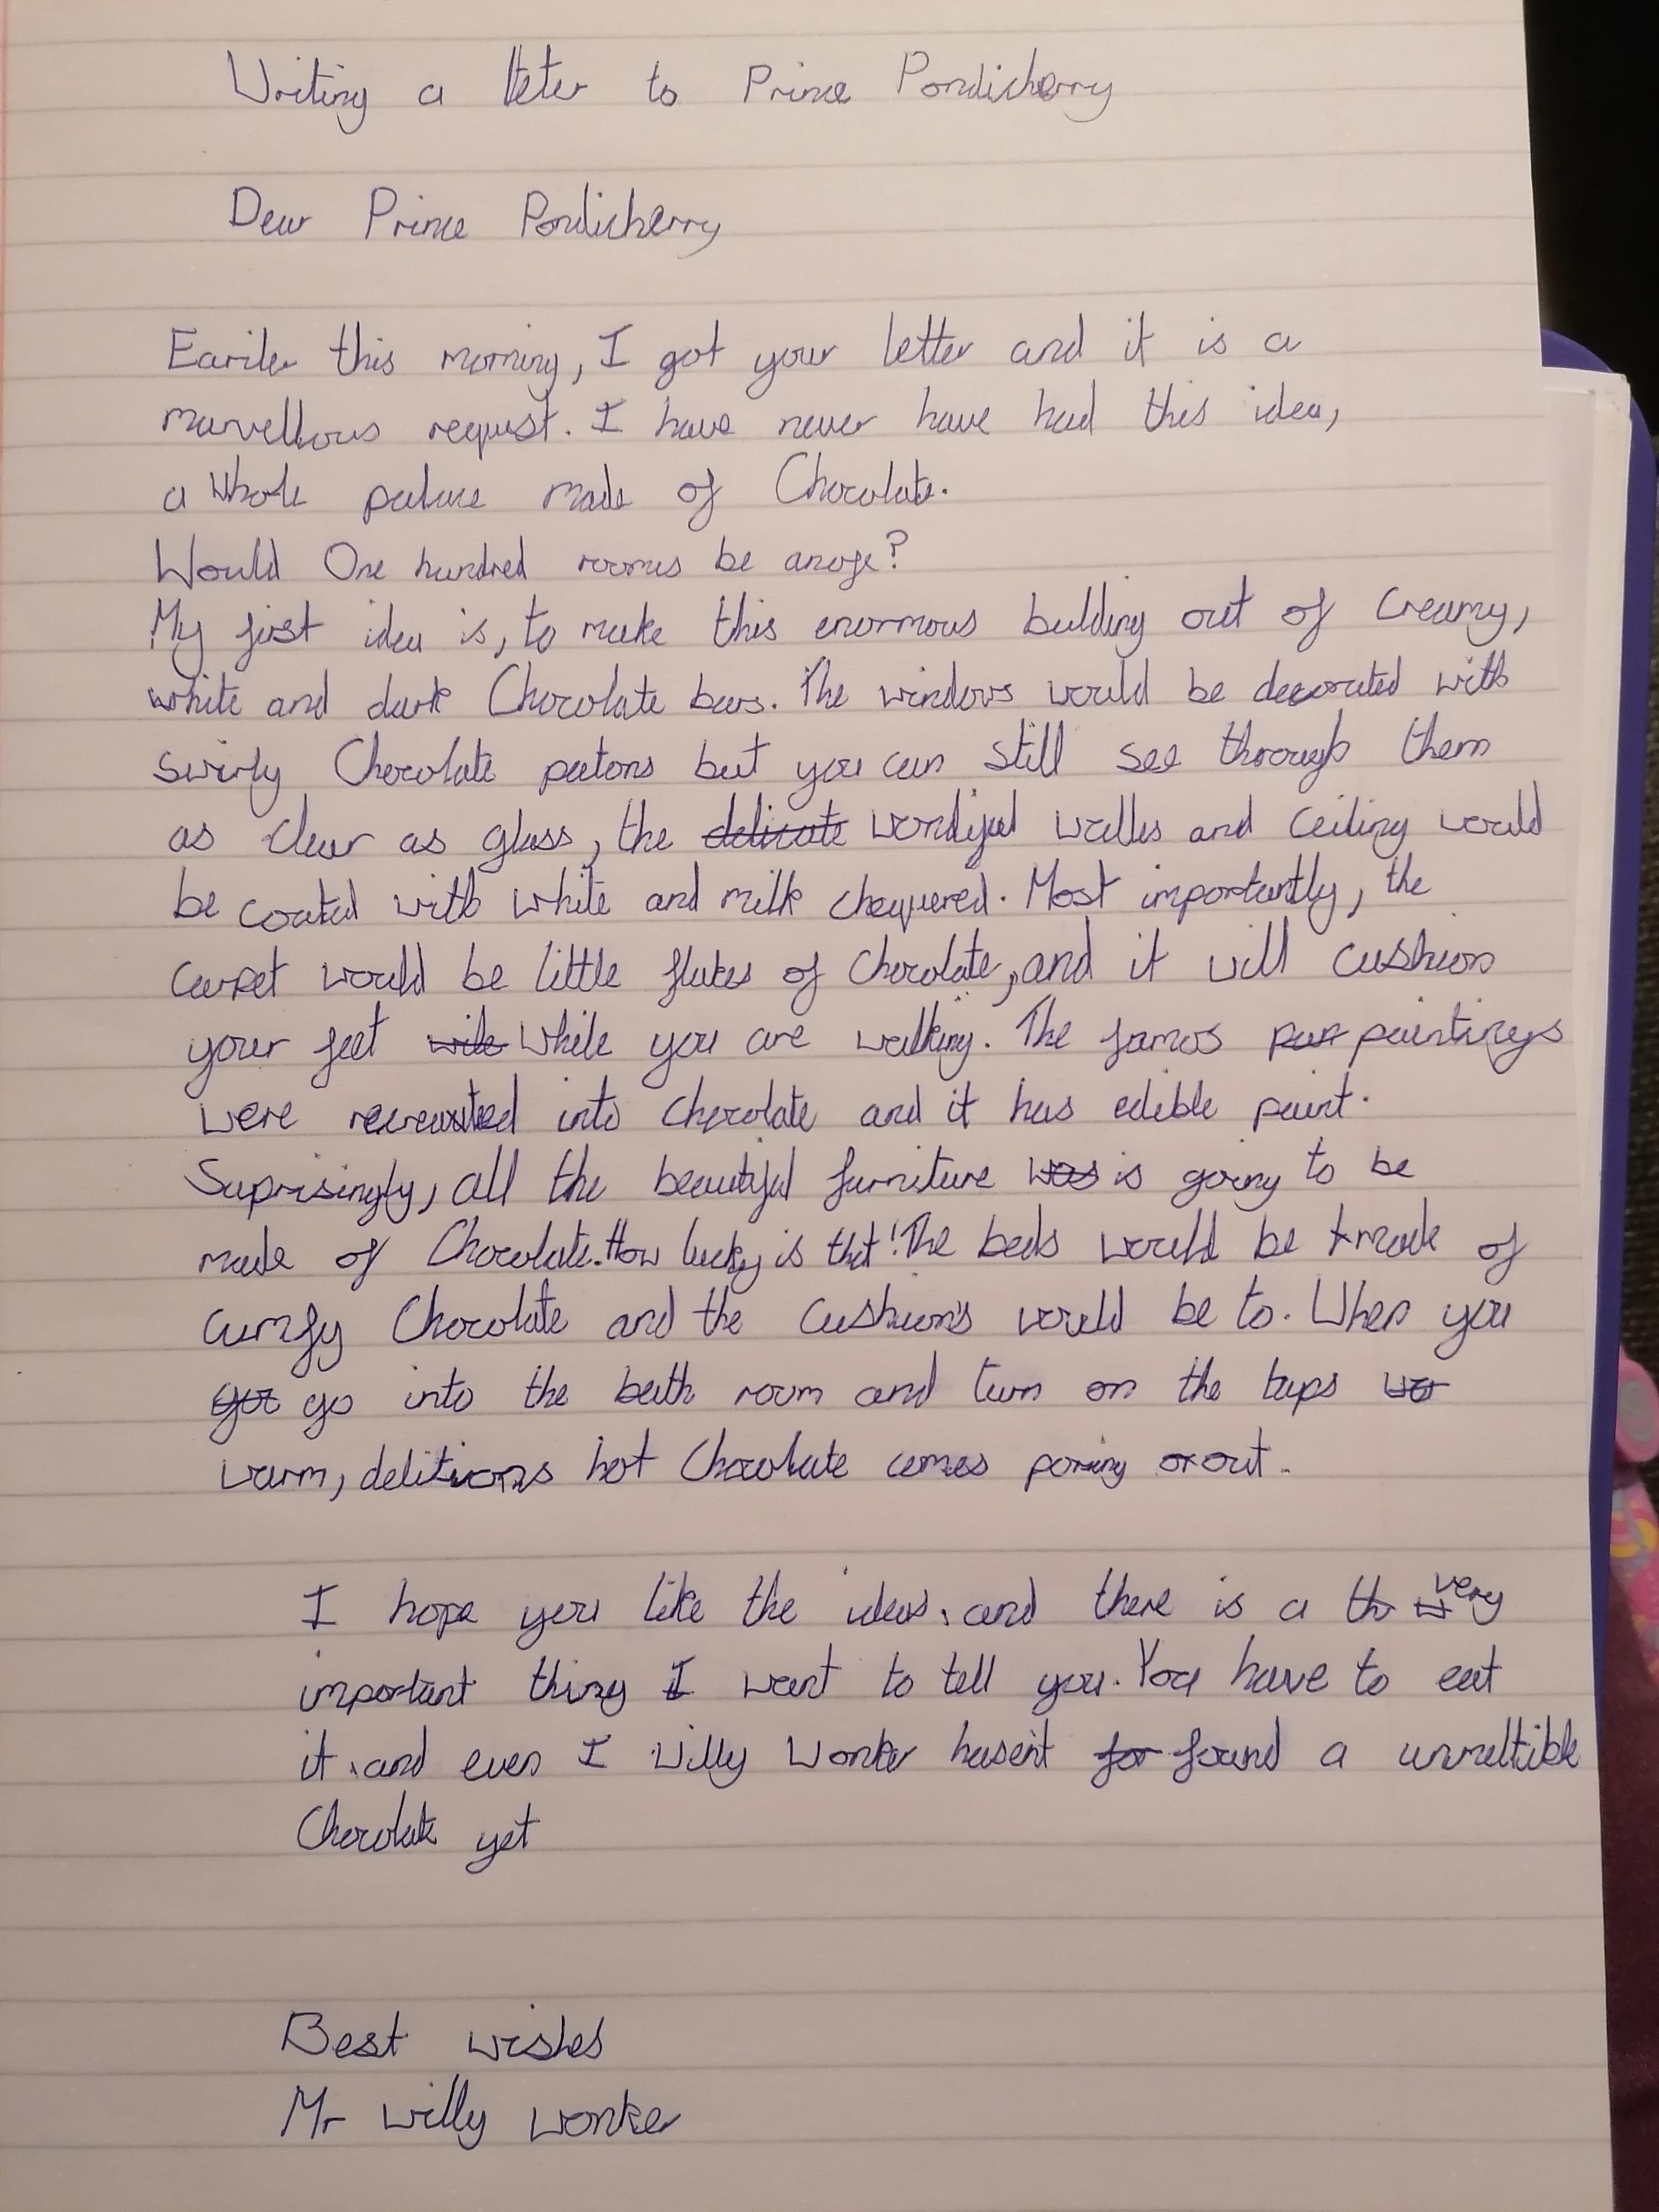 Writing a leter to Prince Pondicherry
Dear Prince Pondicherry
Eariler this morning, I got your letter and it is a
marvellous request. I have never have had this idea,
a whole palace made of Chocolate.
Would One hundred rooms be anofe?
My first idea is, to make this enormous bulding out of creamy,
white and dark Chocolate bars. The windows would be decorated with
swirly Chocolate patons but you can still see through them
as clear as glass, the delicate wondiful walles and ceiling would
be coated with white and milk chequered. Most importantly, the
carpet would be little flakes of Chocolate, and it will cushion
your feet wile while you are walking. The famos pan paintings
were recreated into chocolate and it has edible paint.
Suprisingly, all the beautiful furniture was is going to be
made of Chocolate. How lucky is that! The beds would be made of
cumfy Chocolate and the cushions would be to. When you
got go into the bath room and turn on the taps wor
warm, delitions hot Chocolate comes poring out.
I hope you like the ideas, and there is a th very
important thing I want to tell you. You have to eat
it, and even I Willy Wonker hasen't for found a unmeltible
Chocolate yet
Best wishes
Mr Willy Wonker